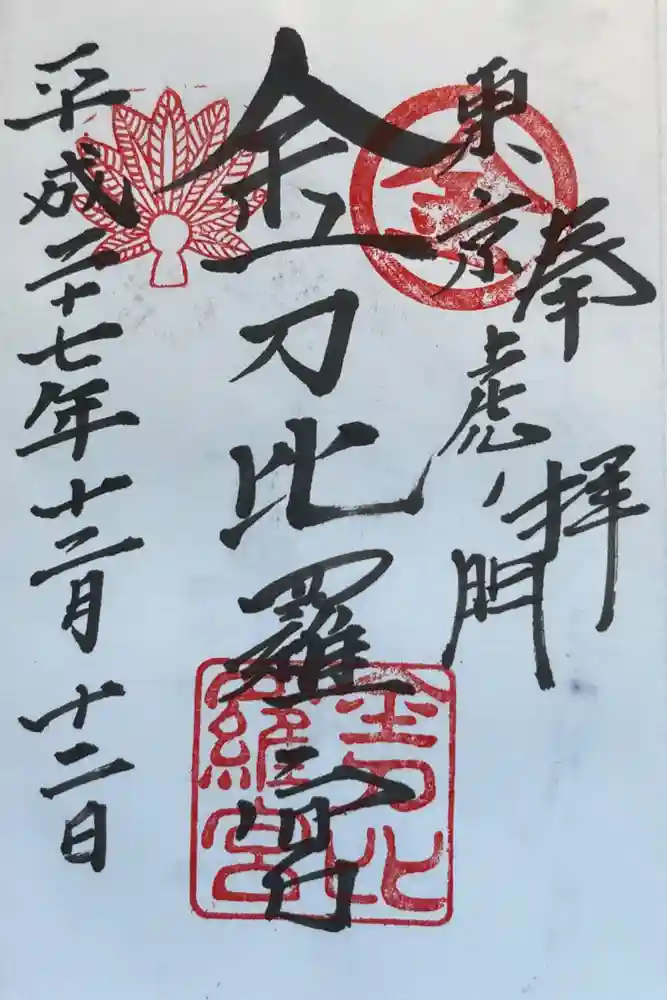 奉拝
東京虎ノ門
金
金刀比羅宮
金刀比
羅宮
平成二十七年十二月十二日